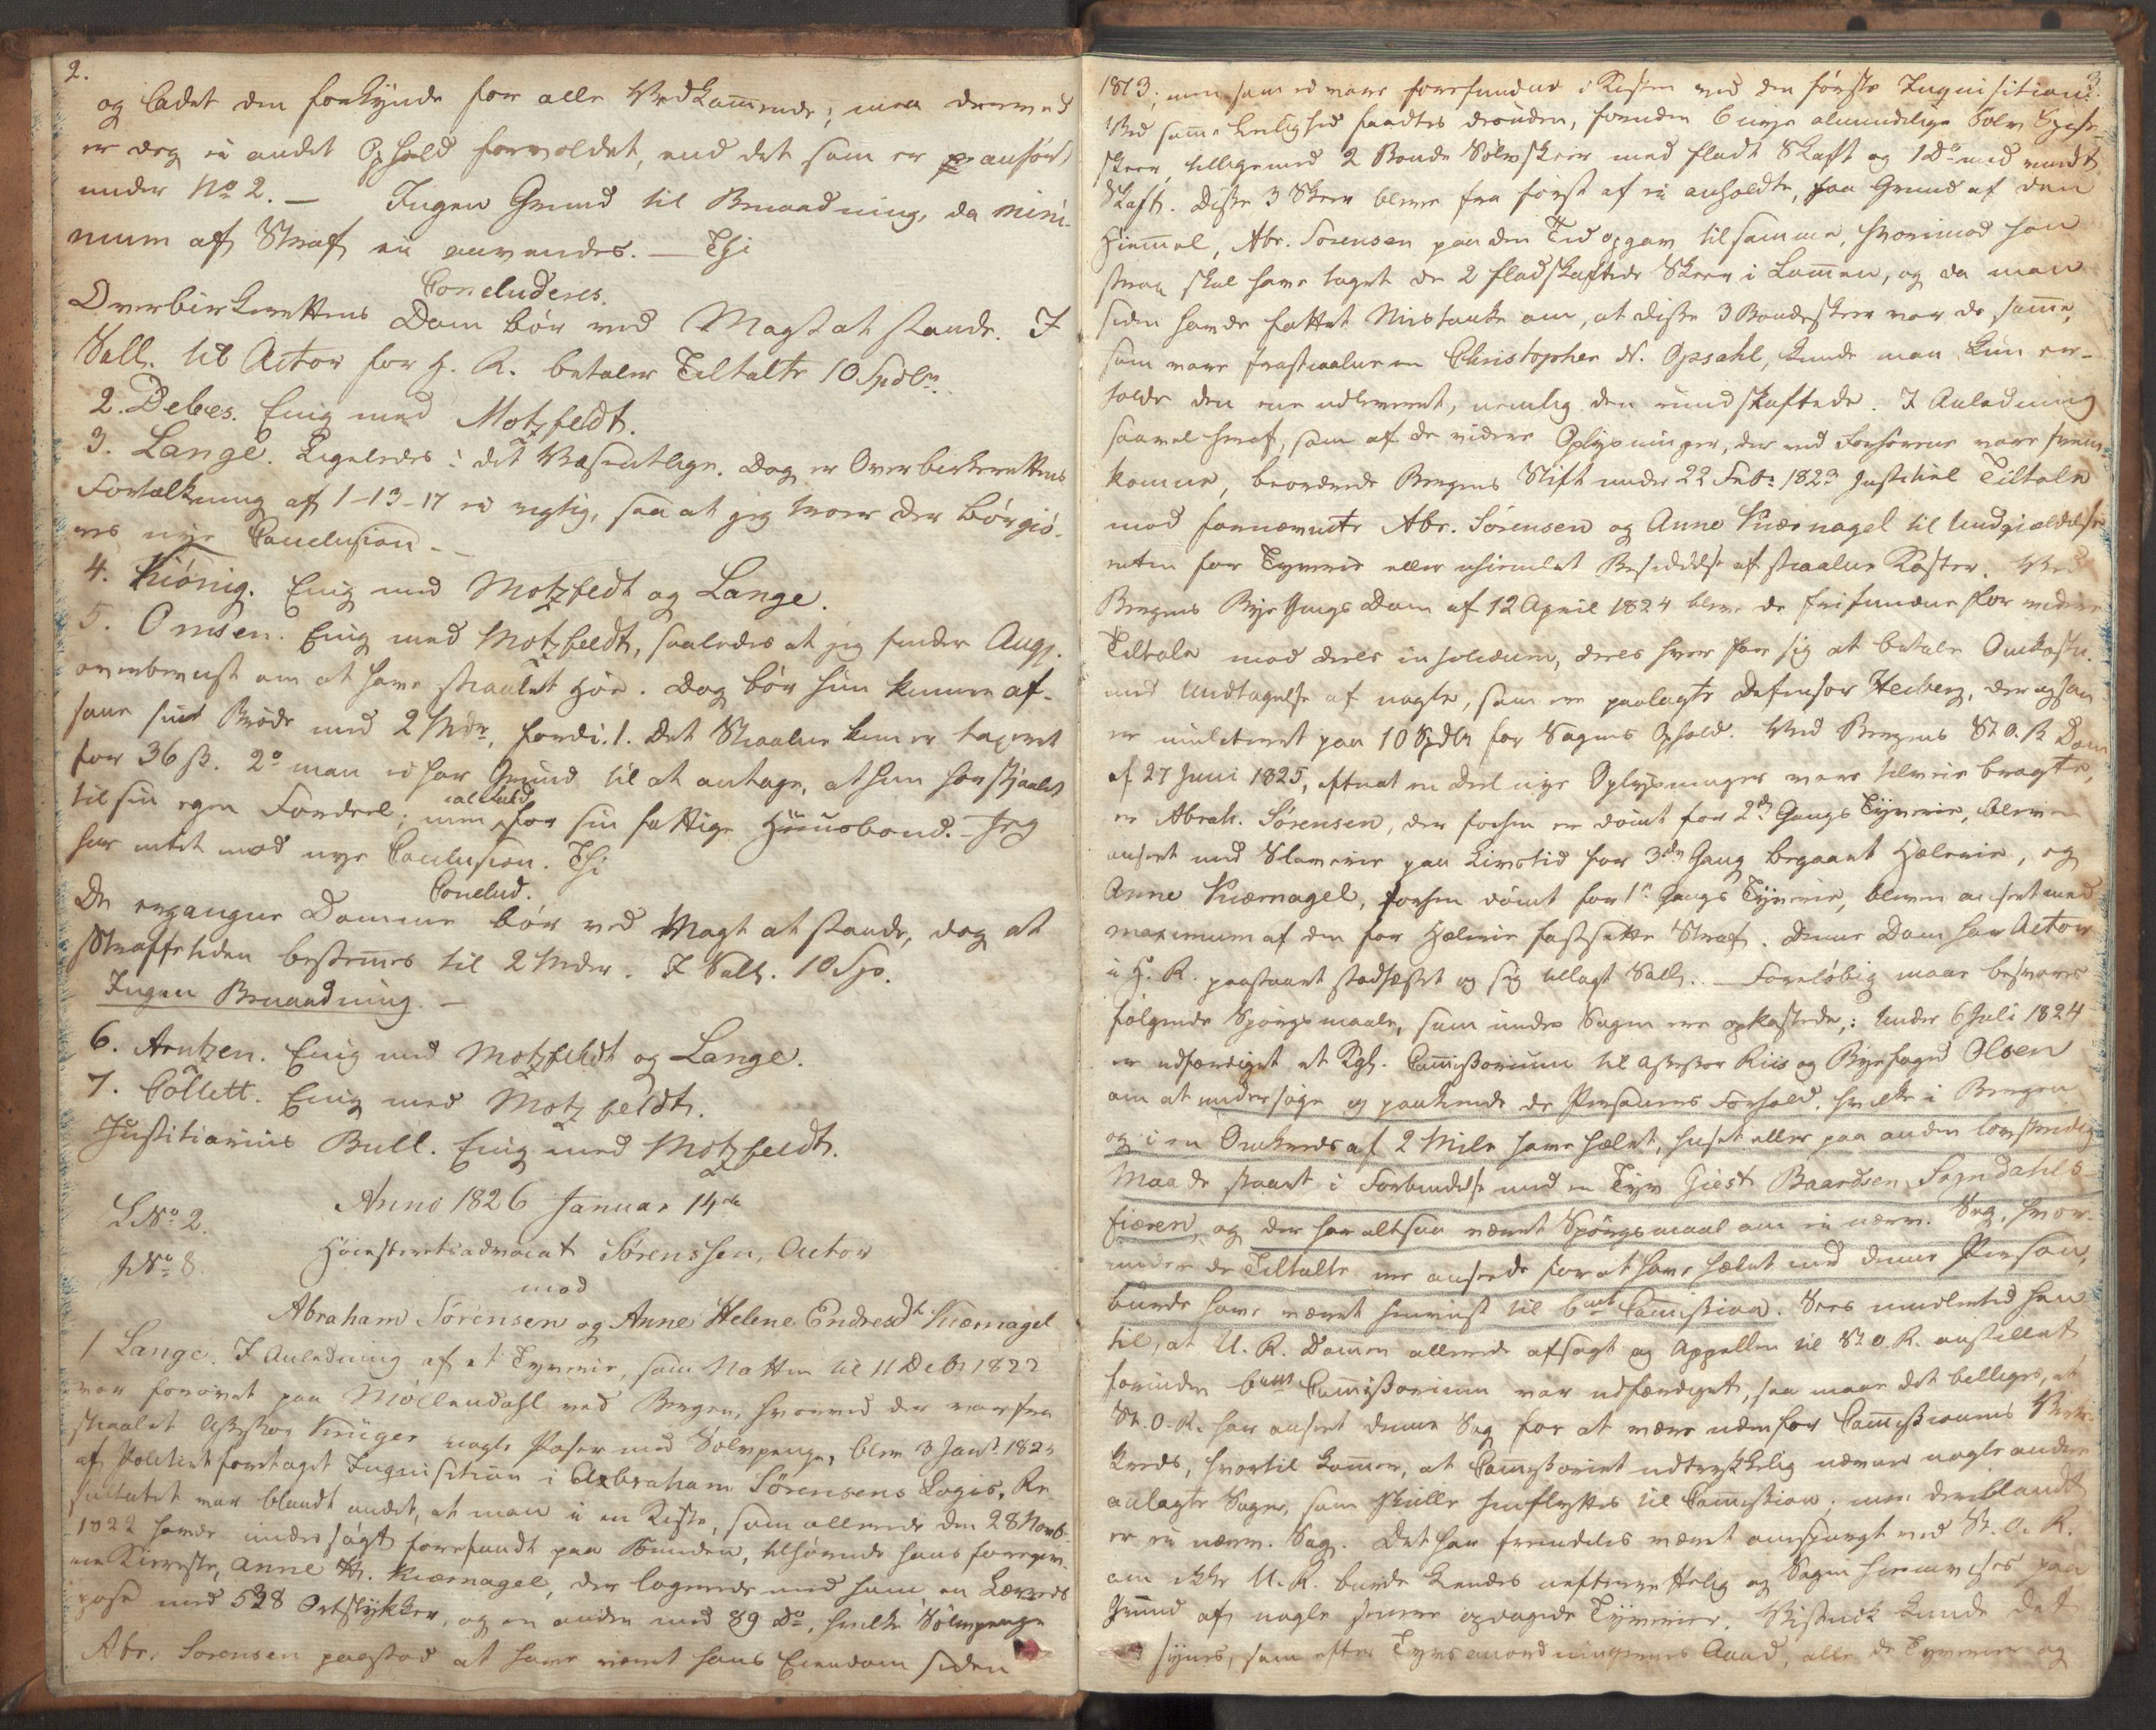 2.
og ladet den forkynde for alle Vedkommende; men derved
er dog ei andet Ophold forvoldet, end det som er anført
under No 2. — Ingen Grund til Benaadning, da mini-
mum af Straf ei anvendes. — Thi
Concluderes.
Overbirkerettens Dom bør ved Magt at stande. I
Sall. til Actor for H. R. betaler Tiltalte 10 Spdlr.
2. Debes. Enig med Motzfeldt.
3. Lange. Ligeledes i det Væsentlige. Dog er Overbirkerettens
Fortolkning af 1-13-17 ei rigtig, saa at jeg troer der bør giø-
res nye Conclusion. —
4. Kiönig. Enig med Motzfeldt og Lange.
5. Omsen. Enig med Motzfeldt, saaledes at jeg finder Angj.
overbeviist om at have stiaalet Høe. Dog bør hun kunne af-
sone sin Brøde med 2 Mdr, fordi. 1. det Stiaalne kun er taxeret
for 36 ß. 2o man ei har Grund til at antage, at hun har stjaalet
til sin egen Fordeel; men ialtfald for sin fattige Huusbond. — Jeg
har intet mod nye Conclusion. Thi
Conclud.
De ergangne Domme bør ved Magt at stande, dog at
Straffetiden bestemes til 2 Mdr. I Sall. 10 Sp.
Ingen Benaadning. —
6. Arntzen. Enig med Motzfeldt og Lange.
7. Collett. Enig med Motzfeldt.
Justitiarius Bull. Enig med Motzfeldt.
Anno 1826 Januar 14de
L No 2.
No 8.
Høiesteretsadvocat Sørenssen, Actor
mod
Abraham Sörensen og Anne Helene Endresdt Kiærnagel
1 Lange. I Anledning af et Tyverie, som Natten til 11 Debr 1822
var forøvet paa Møllendahl ved Bergen, hvorved der var fra
stiaalet Assessor Krüger nogle Poser med Sølvpenge, blev 3 Janr 1823
af Politiet foretaget Inquisition i Abraham Sörensens Logis. Re
sultatet var blandt andet, at man i en Kiste, som allerede den 28 Novb.
1822 havde undersøgt forefandt paa Bunden, tilhørende hans foregiv-
ne Kiereste, Anne H. Kiærnagel, der logerede med ham en Lærreds
pose med 538 Ortstykker, og en anden med 89 Do, hvilke Sølvpenge
Abr. Sörensen paastod at have været hans Eiendom siden
3.
1813; men som ei vare forefundne i Kisten ved den første Inquisition.
Ved samme Leilighed fandtes desuden, foruden 6 nye almindelige Sølv Spise-
skeer, tillige med 2 Bonde Sølvskeer med fladt Skaft og 1 Do med rundt
Skaft. Disse 3 Skeer bleve fra først af ei anholdte, paa Grund af den
Hiemmel, Abr. Sörensen paa den Tid opgav til samme, hvorimod han
strax skal have taget de 2 fladskaftede Skeer i Lommen, og da man
siden havde fattet Mistanke om, at disse 3 Bondeskeer var de samme,
som vare frastiaalne en Christopher N. Opsahl, kunde man kun er-
holde den ene udleveret, nemlig den rundskaftede. I Anledning
saavel heraf, som af de videre Oplysninger, der ved Forhørene vare frem-
komne, beordrede Bergens Stift under 22 Febr 1823 Justitiel Tiltale
mod fornævnte Abr. Sörensen og Anne Kiærnagel til Undgieldelse
enten for Tyverie eller uhiemlet Besiddelse af stiaalne Koster. Ved
Bergens Bye Tings Dom af 12 April 1824 bleve de frifundne for videre
Tiltale mod deels in solidum, deels hver for sig at betale Omkostn.
med Undtagelse af nogle, som ere paalagte Defensor Heiberg, der ogsaa
er mulcteret paa 10 Spdlr for Sagens Ophold. Ved Bergens St. O. R. Dom
af 27 Juni 1825, efterat en Deel nye Oplysninger vare tilveie bragte,
er Abrah. Sörensen, der forhen er dømt for 2de Gangs Tyverie, bleven
anseet med Slaverie paa Livstid for 3die Gang begaaet Hælerie, og
Anne Kiærnagel, forhen dømt for 1te Gangs Tyverie, bleven anseet med
maximum af den for Hælerie fastsatte Straf. Denne Dom har Actor
i H. R. paastaaet stadfæstet og sig tillagt Sall. — Foreløbig maae besvares
følgende Spørgsmaale, som under Sagen ere opkastede: Under 6 Juli 1824
er udfærdiget et Kgl. Commissorium til Assessor Riis og Byefoged Olsen
om at undersøge og paakiende de Personers Forhold, hvilke i Bergen
og i en Omkreds af 2 Mile have hælet, huset eller paa anden lovstridig
Maade staaet i Forbindelse med en Tyv Giest Baardsen Sogndahls-
fiæren, og der har altsaa været Spørgsmaal om ei nærv. Sag, hvor-
under de Tiltalte ere anseede for at have hælet med denne Person,
burde have været henviist til bemte Commission. Sees imidlertid hen
til, at U. R. Dommen allerede afsagt og Appellen til St. O. R. anstillet
forinden bemte Commissorium var udfærdiget, saa maae det billiges, at
St. O. R. har anseet denne Sag for at være udenfor Commissionens Virke-
kreds, hvortil kommer, at Commissoriet udtrykkelig nævner nogle andre
anlagte Sager, som skulle henflyttes til Commission, men deriblandt
er ei nærv. Sag. Det har fremdeles været omspurgt ved St. O. R.
om ikke U. R. burde kiendes uefterrettelig og Sagen hiemvises paa
Grund af nogle senere opdagede Tyverier. Vistnok kunde det
synes, som efter Tyvsanordningernes Aand, alle de Tyverier og